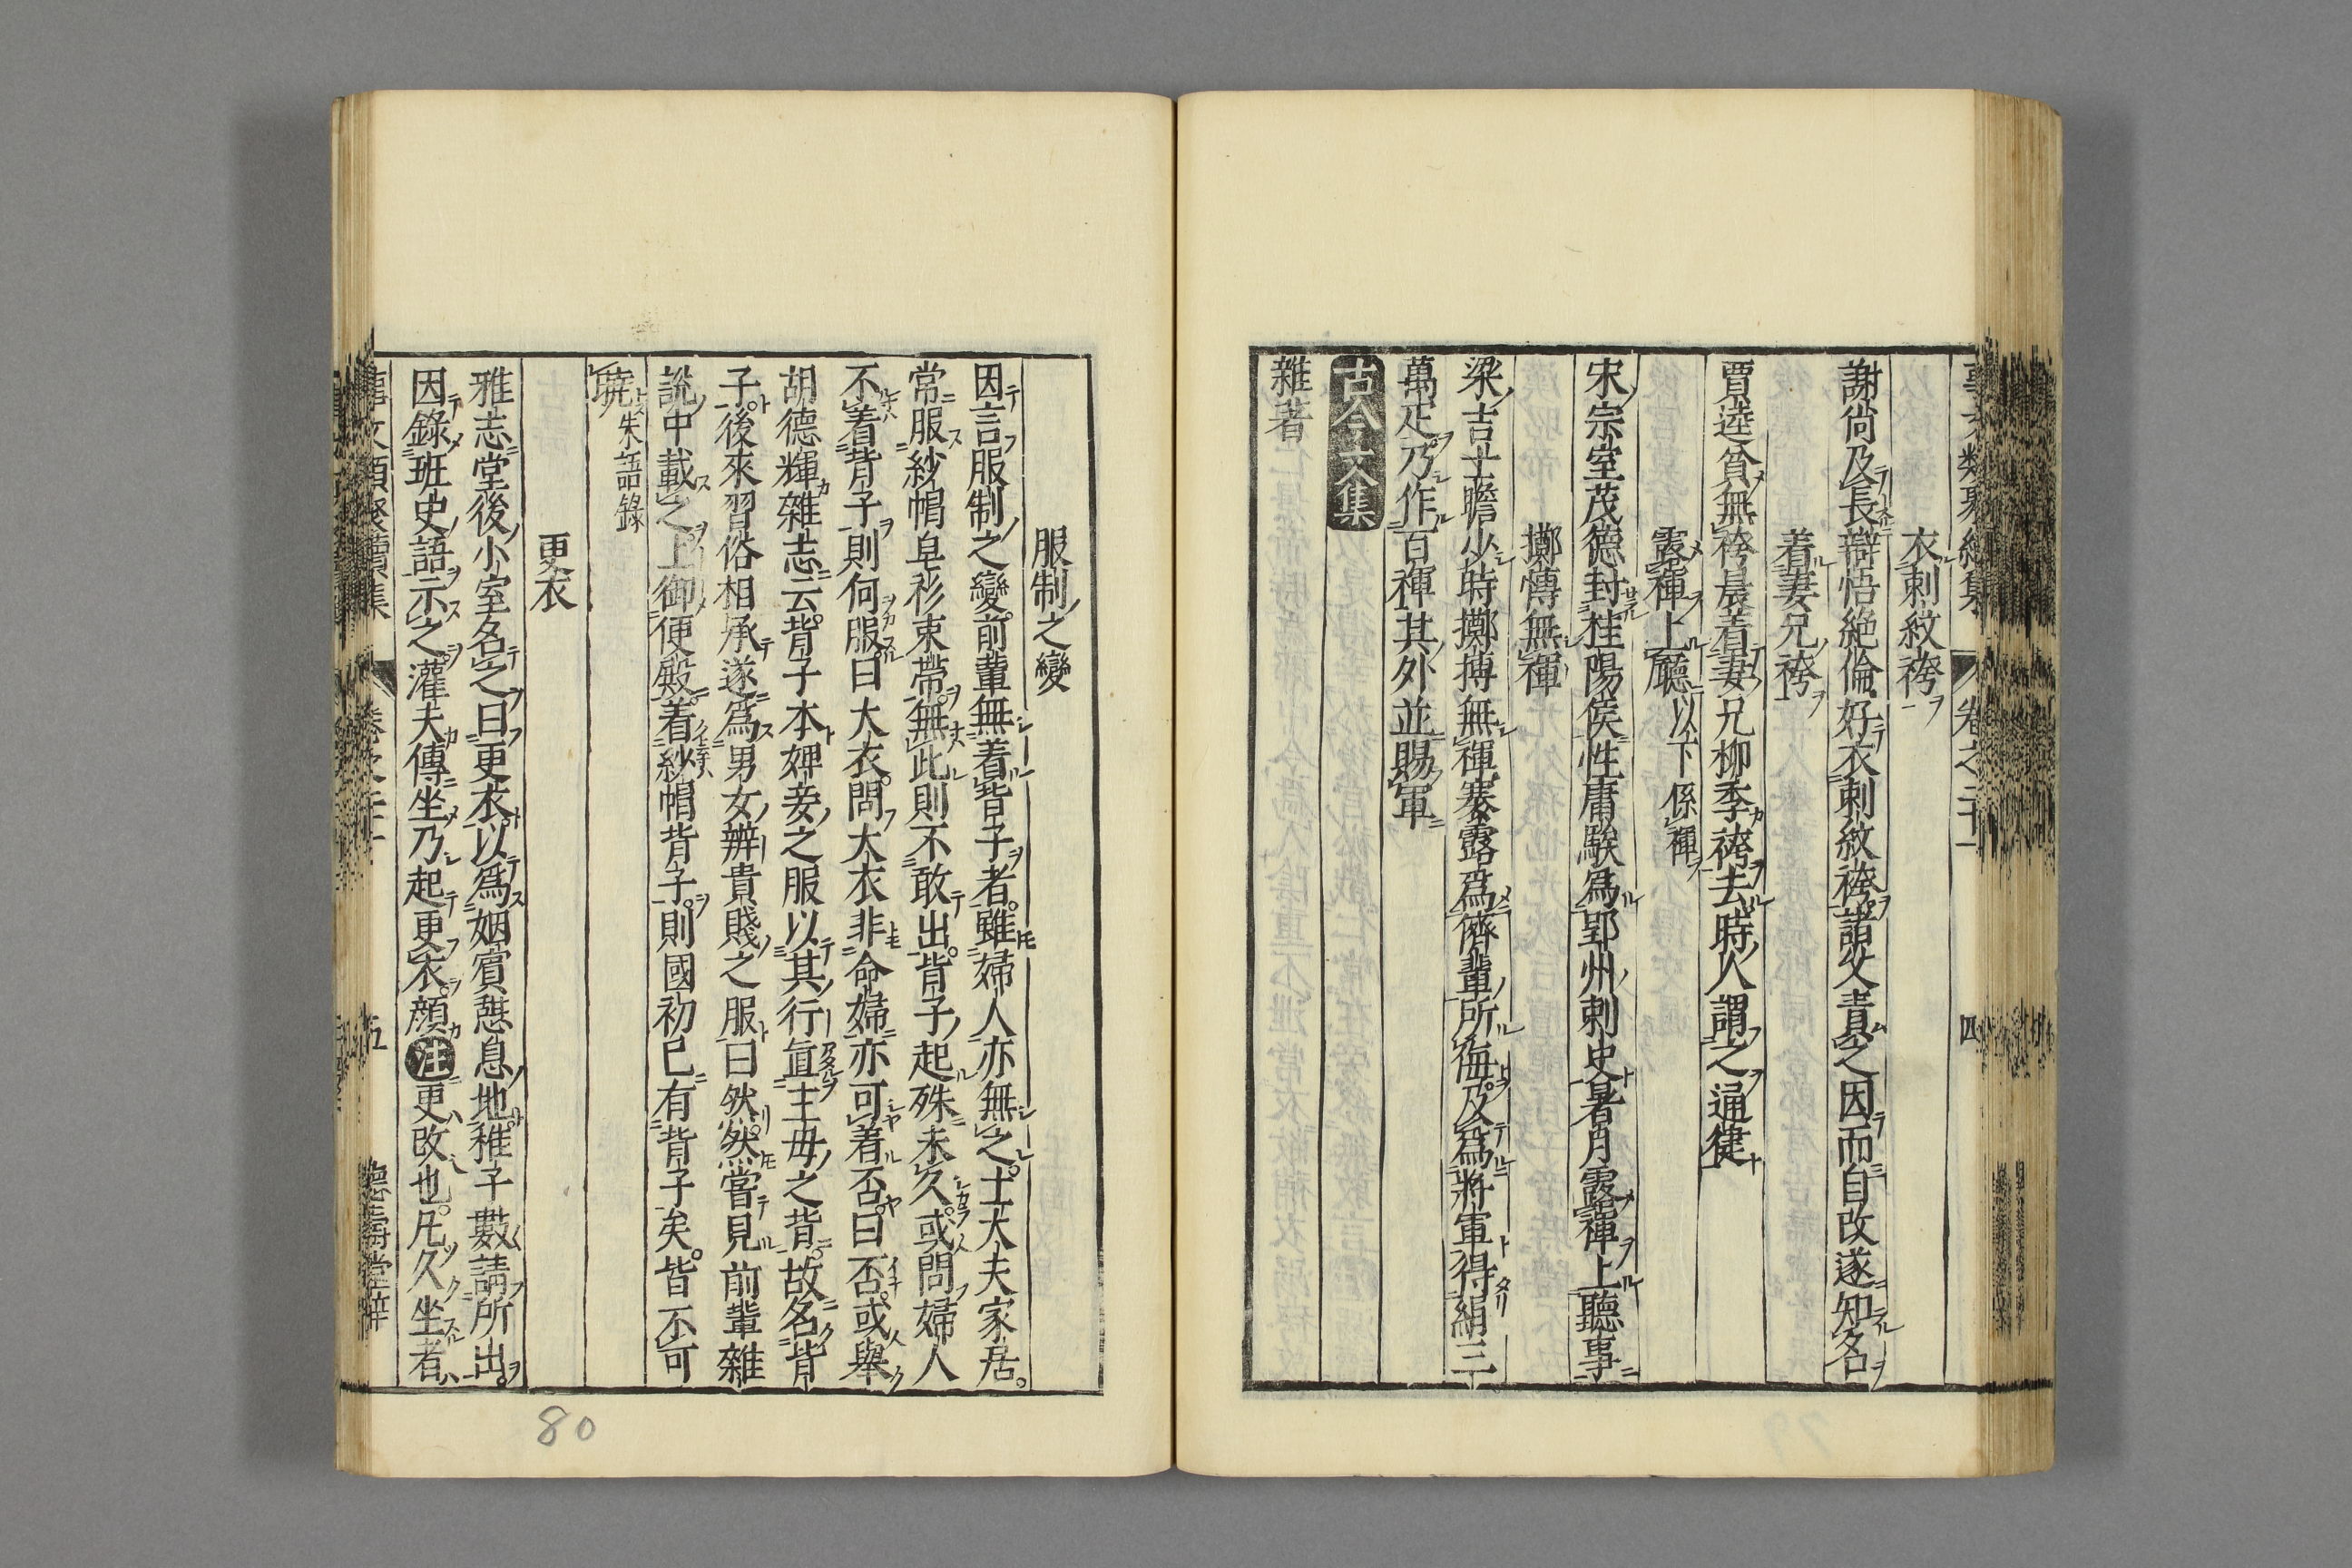 衣刺紋袴
謝尚及長辯悟絶倫好衣刺紋袴諸父責之因而自改遂知名
着妻兄袴
賈逵貧無袴晨着妻兄柳季袴去時人謂之通健
露褌上廳以下係褌
宋宗室茂德封桂陽侯性庸騃爲郢州刺史暑月露褌上聽事
擲慱無褌
梁吉士瞻少時擲摶無褌褰露爲儕輩所侮及爲將軍得絹三
萬疋乃作百褌其外並賜軍
古今文集
雜著
服制之變
因言服制之變前輩無着背子者雖婦人亦無之士大夫家居
常服紗帽皂衫束帶無此則不敢出背子起殊未久或問婦人
不着背子則何服曰大衣問大衣非命婦亦可着否曰否或舉
胡德輝雜志云背子本婢妾之服以其行直主母之背故名背
子後來習俗相承遂爲男女辨貴賤之服曰然然嘗見前輩雜
説中載之上御便殿着紗帽背子則國初已有背子矣皆不可
曉朱語錄
更衣
雅志堂後小室名之曰更衣以爲姻賓憩息地稚子數請所出
因錄班史語示之灌夫傳坐乃起更衣顔注更改也凡久坐者
事文類聚續集 卷之二十一 五 德壽堂梓
80